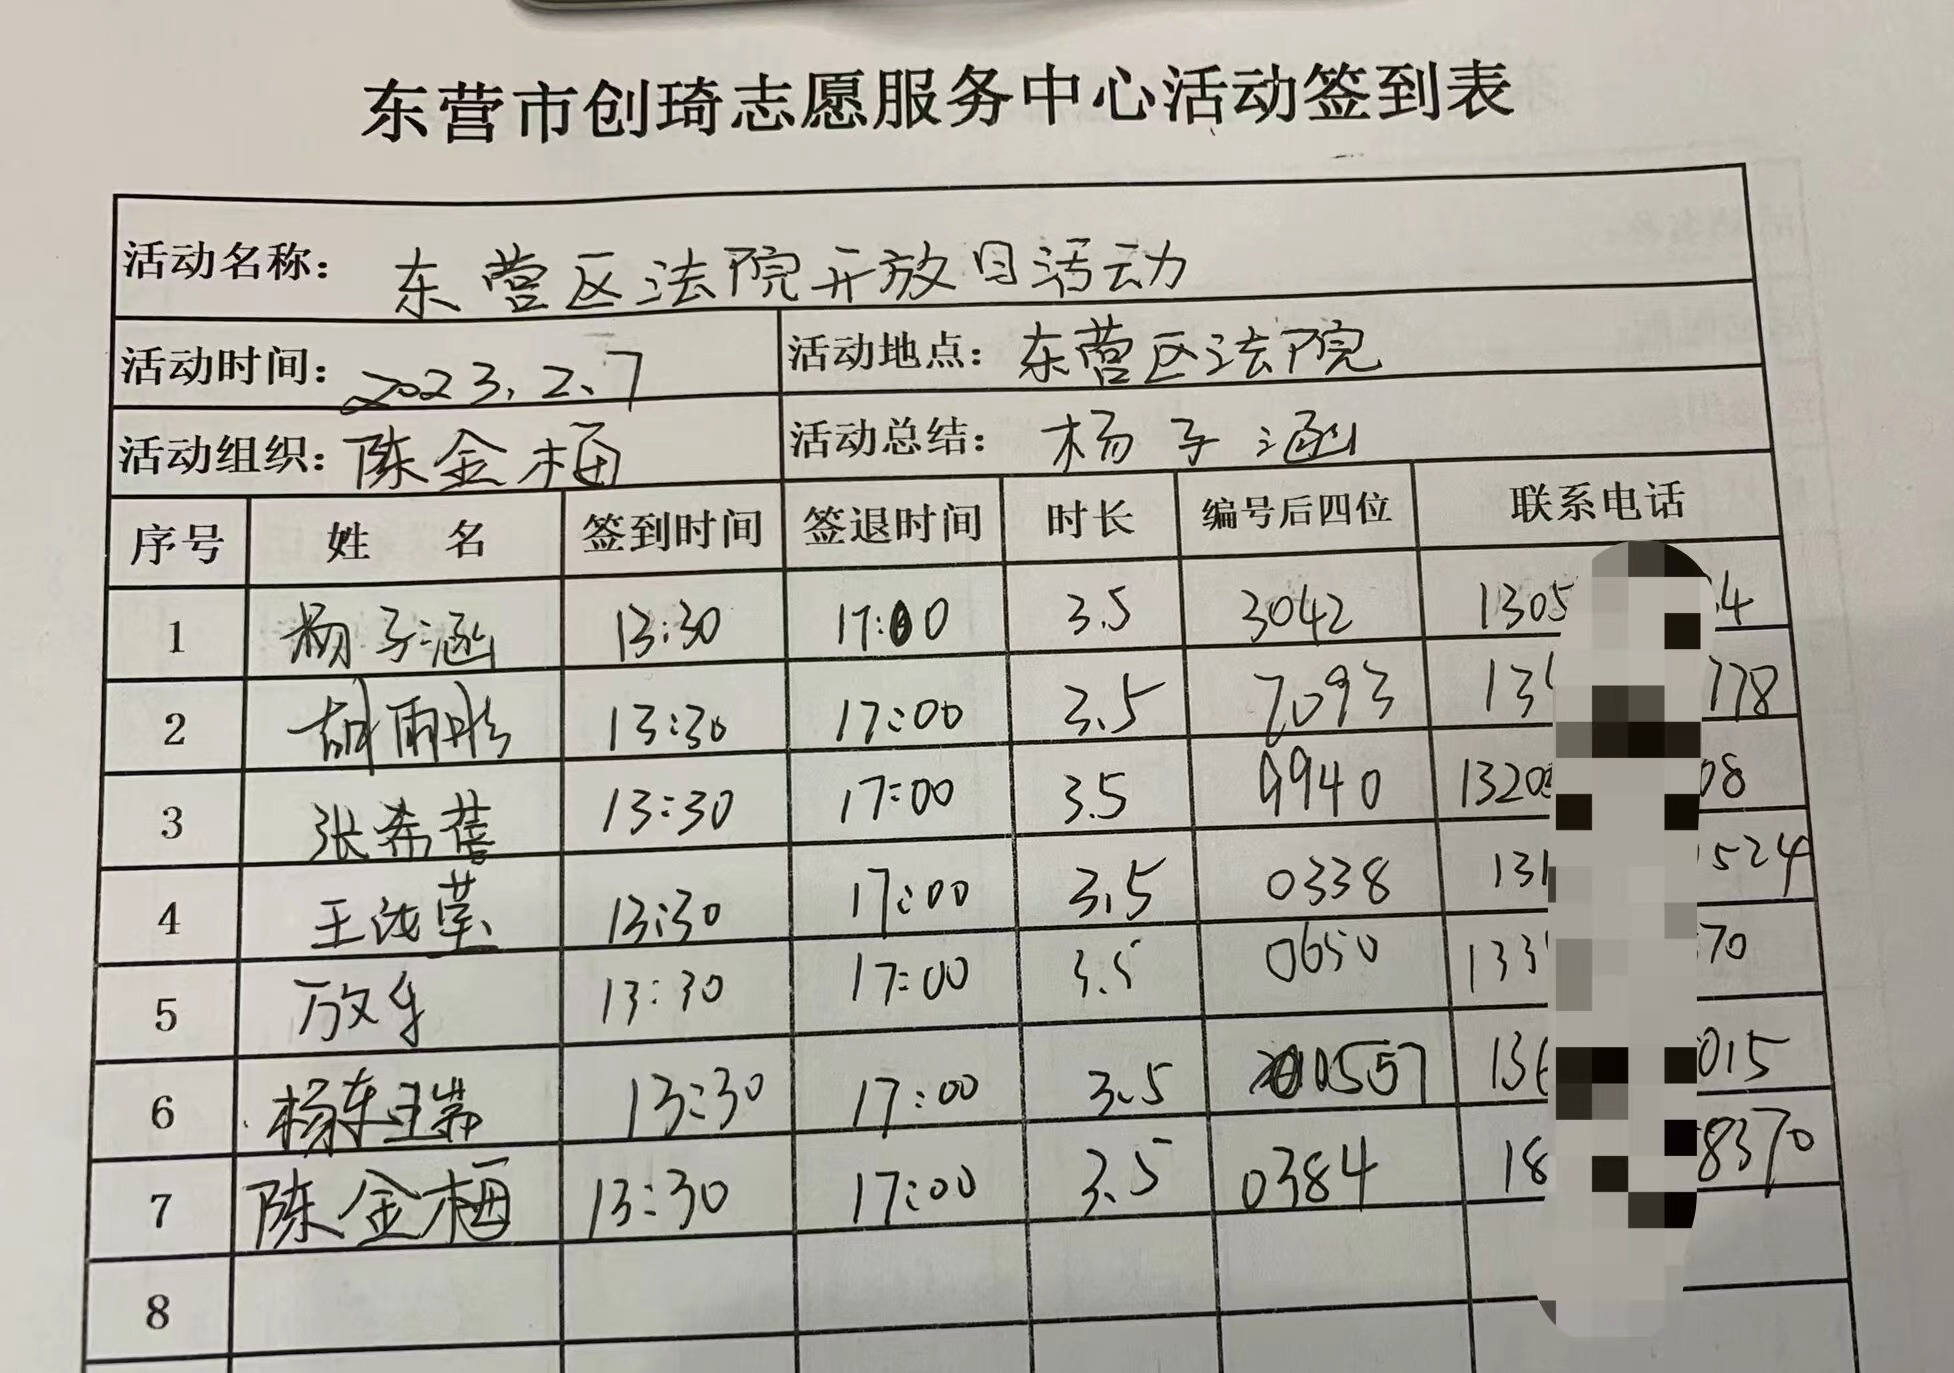 东营市创琦志愿服务中心活动签到表
活动名称： 东营区法院开放日活动
活动时间： 2023.2.7 活动地点： 东营区法院
活动组织： 陈金梅 活动总结： 杨子涵
序号 姓 名 签到时间 签退时间 时长 编号后四位 联系电话
1 杨子涵 13:30 17:00 3.5 3042 1305 4
2 胡雨彤 13:30 17:00 3.5 7093 13 778
3 张希蓓 13:30 17:00 3.5 9940 1320 08
4 王 莹 13:30 17:00 3.5 0338 131 1524
5 13:30 17:00 3.5 0650 133 70
6 杨东瑞 13:30 17:00 3.5 0557 136 015
7 陈金梅 13:30 17:00 3.5 0384 18 8370
8